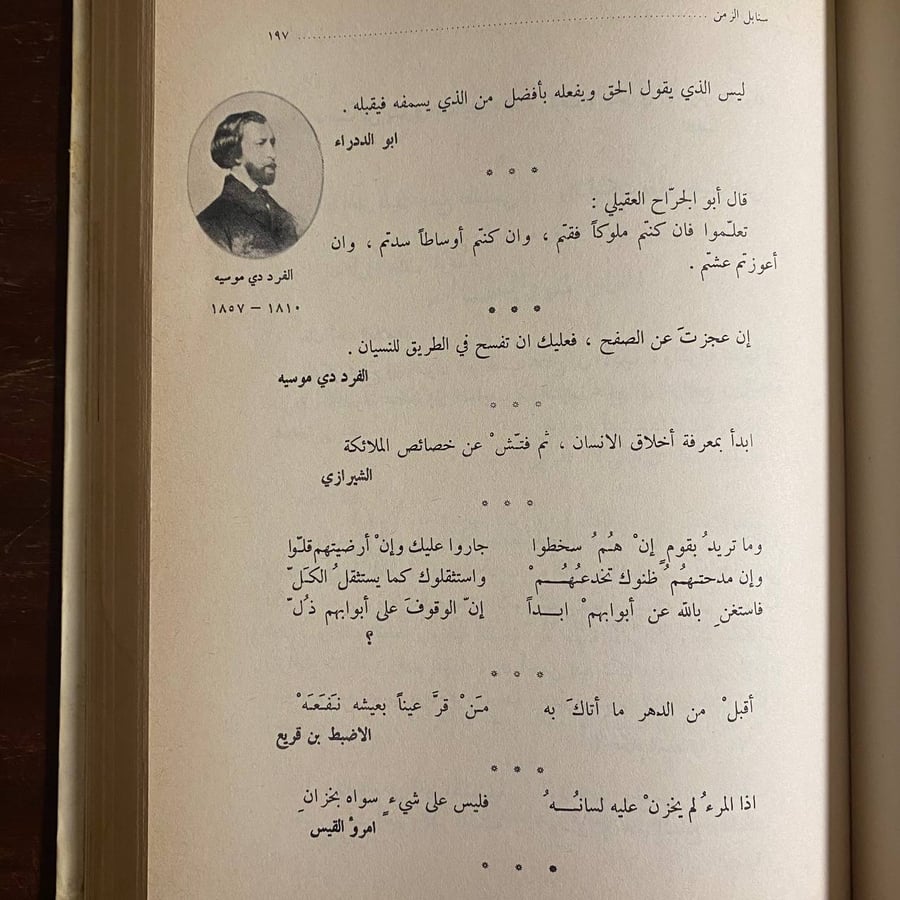 سنابل الزمن ........................................ ١٩٧
ليس الذي يقول الحق ويفعله بأفضل من الذي يسمفه فيقبله .
ابو الددراء
* * *
قال أبو الجرّاح العقيلي :
تعلّموا فان كنتم ملوكاً فقتم ، وان كنتم أوساطاً سدتم ، وان
أعوزتم عشتم .
الفرد دي موسيه
١٨١٠ – ١٨٥٧
* * *
إن عجزتَ عن الصفح ، فعليك ان تفسح في الطريق للنسيان .
الفرد دي موسيه
* * *
ابدأ بمعرفة أخلاق الانسان ، ثم فتّشْ عن خصائص الملائكة
الشيرازي
* * *
وما تريدُ بقومٍ إنْ همُ سخطوا جاروا عليك وإنْ أرضيتهم قلّوا
وإن مدحتهمُ ظنوك تخدعُهُمْ واستثقلوك كما يستثقلُ الكَلّ
فاستغنِ بالله عن أبوابهمْ ابداً إنّ الوقوفَ على أبوابهم ذُلّ
؟
* * *
أقبلْ من الدهر ما أتاكَ به مَنْ قرَّ عيناً بعيشه نَفَعَهْ
الاضبط بن قريع
* * *
اذا المرءُ لم يخزنْ عليه لسانُهُ فليس على شيءٍ سواه بخزانِ
امرؤ القيس
* * *